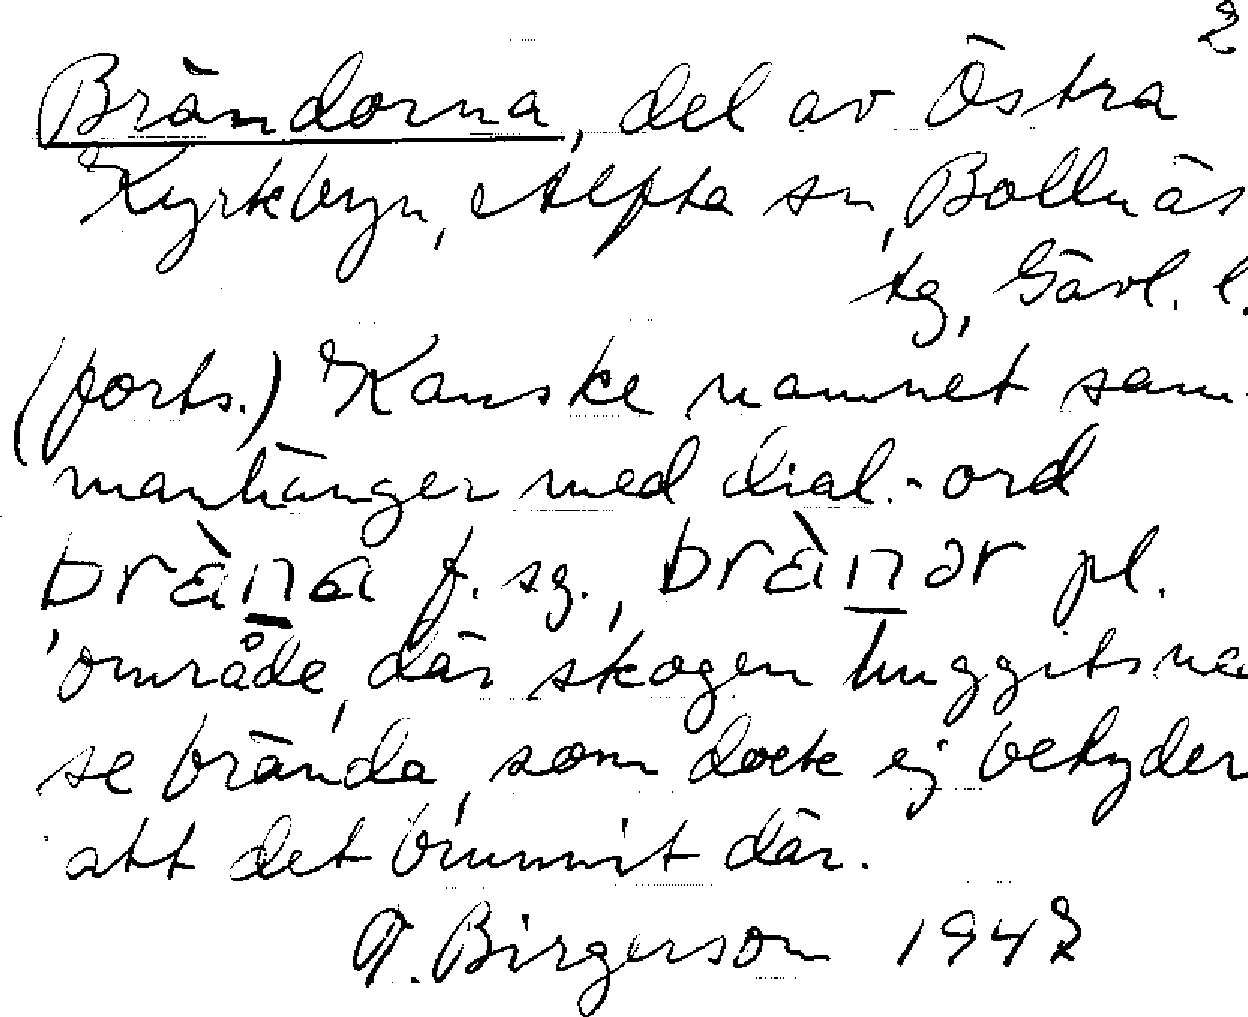 2
Brändorna, del av Östra
Kyrkbyn, Alfta sn, Bollnäs
tg, Gävl. l.
(forts.) Kanske namnet sam-
manhänger med dial.-ord
bràna f. sg., brànər pl.
'område, där skogen huggits ne
se brända, som dock ej betyder
att det brunnit där.
T. Birgerson 1942